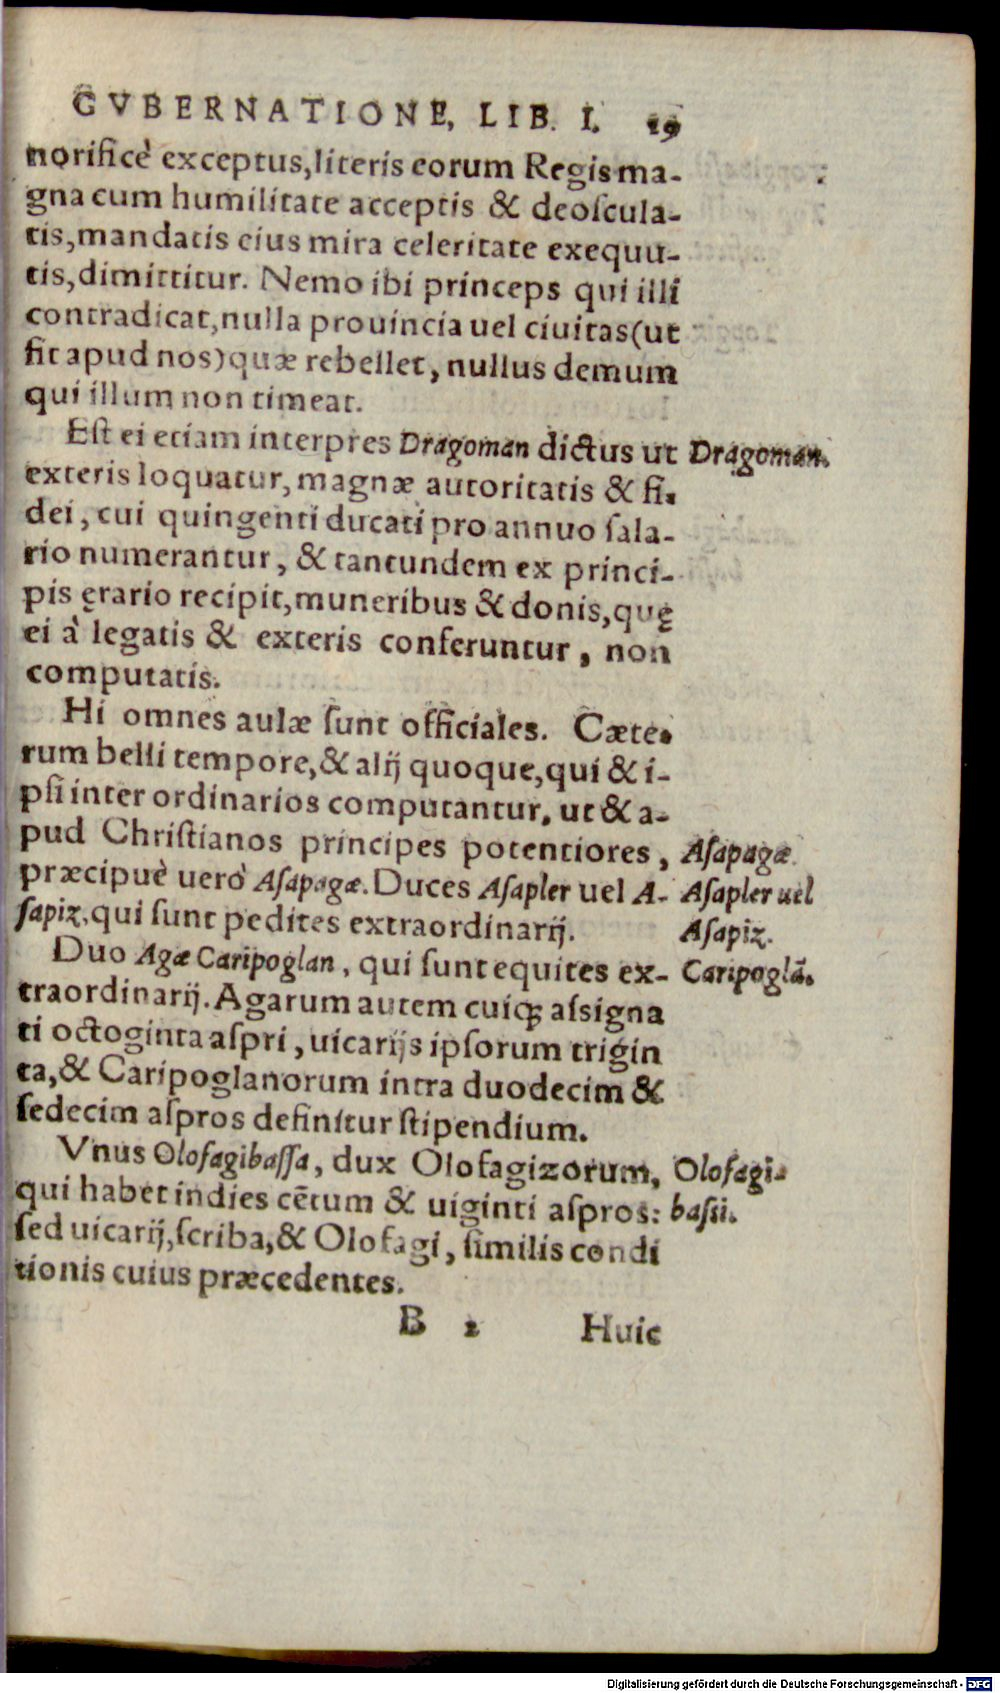 GVBERNATIONE, LIB. I. 19
norificè exceptus, literis eorum Regis ma-
gna cum humilitate acceptis & deoscula-
tis, mandatis eius mira celeritate exequu-
tis, dimittitur. Nemo ibi princeps qui illi
contradicat, nulla prouincia uel ciuitas (ut
fit apud nos) quæ rebellet, nullus demum
qui illum non timeat.
Est ei etiam interpres Dragoman dictus ut Dragoman.
exteris loquatur, magnæ autoritatis & fi-
dei, cui quingenti ducati pro annuo sala-
rio numerantur, & tantundem ex princi-
pis ęrario recipit, muneribus & donis, quę
ei à legatis & exteris conferuntur, non
computatis.
Hi omnes aulæ sunt officiales. Cæte-
rum belli tempore, & alij quoque, qui & i-
psi inter ordinarios computantur, ut & a-
pud Christianos principes potentiores, Asapagæ.
præcipuè uerò Asapagæ. Duces Asapler uel A- Asapler uel
sapiz, qui sunt pedites extraordinarij. Asapiz.
Duo Agæ Caripoglan, qui sunt equites ex- Caripoglã.
traordinarij. Agarum autem cuiq; assigna
ti octoginta aspri, uicarijs ipsorum trigin
ta, & Caripoglanorum intra duodecim &
sedecim aspros definitur stipendium.
Vnus Olofagibassa, dux Olofagizorum, Olofagi-
qui habet indies cẽtum & uiginti aspros: bassii.
sed uicarij, scriba, & Olofagi, similis condi
tionis cuius præcedentes.
B 2 Huic
Digitalisierung gefördert durch die Deutsche Forschungsgemeinschaft - DFG